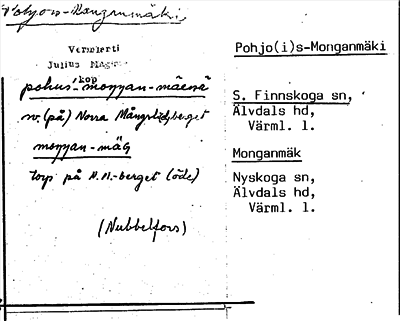 Pohjois-Monganmäki,
Vermlerti
Julius Mägiste
kop
pohus-moŋŋan-mäenä
sv. (på) Norra Mångslidsberget
moŋŋan-mäG
torp på N. M.-berget (öde)
(Nubbelfors)
Pohjo(i)s-Monganmäki
S. Finnskoga sn,
Älvdals hd,
Värml. l.
Monganmäk
Nyskoga sn,
Älvdals hd,
Värml. l.